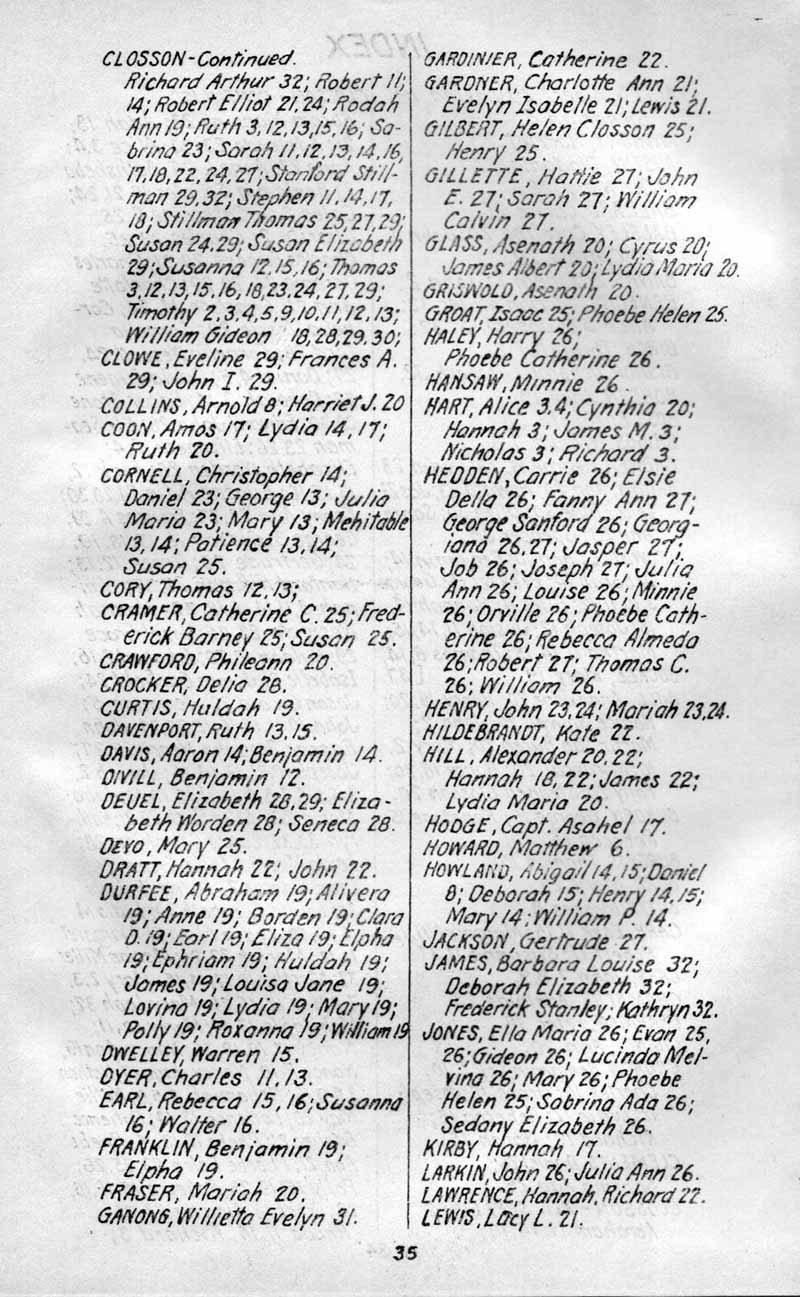 CLOSSON-Continued.
Richard Arthur 32; Robert 11;
14; Robert Elliot 21,24; Rodah
Ann 19; Ruth 3,12,13,15,16; Sa-
brina 23; Sarah 11,12,13,14,16,
17,18,22,24,27; Stanford Still-
man 29,32; Stephen 11,14,17,
18; Stillman Thomas 25,27,29;
Susan 24,29; Susan Elizabeth
29; Susanna 12,15,16; Thomas
3,12,13,15,16,18,23,24,27,29;
Timothy 2,3,4,5,9,10,11,12,13;
William Gideon 18,28,29,30;
CLOWE, Eveline 29; Frances A.
29; John I. 29.
COLLINS, Arnold 8; Harriet J. 20
COON, Amos 17; Lydia 14,17;
Ruth 20.
CORNELL, Christopher 14;
Daniel 23; George 13; Julia
Maria 23; Mary 13; Mehitable
13,14; Patience 13,14;
Susan 25.
CORY, Thomas 12,13;
CRAMER, Catherine C. 25; Fred-
erick Barney 25; Susan 25.
CRAWFORD, Phileann 20.
CROCKER, Delia 28.
CURTIS, Huldah 19.
DAVENPORT, Ruth 13,15.
DAVIS, Aaron 14; Benjamin 14.
DIVILL, Benjamin 12.
DEUEL, Elizabeth 28,29; Eliza-
beth Worden 28; Seneca 28.
DEVO, Mary 25.
DRATT, Hannah 22; John 22.
DURFEE, Abraham 19; Alivera
19; Anne 19; Borden 19; Clara
D. 19; Earl 19; Eliza 19; Elpha
19; Ephriam 19; Huldah 19;
James 19; Louisa Jane 19;
Lovina 19; Lydia 19; Mary 19;
Polly 19; Roxanna 19; William 19
DWELLEY, Warren 15.
DYER, Charles 11,13.
EARL, Rebecca 15,16; Susanna
16; Walter 16.
FRANKLIN, Benjamin 19;
Elpha 19.
FRASER, Mariah 20.
GANONG, Willietta Evelyn 31.
GARDINIER, Catherine 22.
GARDNER, Charlotte Ann 21;
Evelyn Isabelle 21; Lewis 21.
GILBERT, Helen Closson 25;
Henry 25.
GILLETTE, Hattie 27; John
E. 27; Sarah 27; William
Calvin 27.
GLASS, Asenath 20; Cyrus 20;
James Albert 20; Lydia Maria 20.
GRISWOLD, Asenath 20.
GROAT, Isaac 25; Phoebe Helen 25.
HALEY, Harry 26;
Phoebe Catherine 26.
HANSAW, Minnie 26.
HART, Alice 3,4; Cynthia 20;
Hannah 3; James M. 3;
Nicholas 3; Richard 3.
HEDDEN, Carrie 26; Elsie
Della 26; Fanny Ann 27;
George Sanford 26; Georg-
iana 26,27; Jasper 27;
Job 26; Joseph 27; Julia
Ann 26; Louise 26; Minnie
26; Orville 26; Phoebe Cath-
erine 26; Rebecca Almeda
26; Robert 27; Thomas C.
26; William 26.
HENRY, John 23,24; Mariah 23,24.
HILDEBRANDT, Kate 22.
HILL, Alexander 20,22;
Hannah 18,22; James 22;
Lydia Maria 20.
HODGE, Capt. Asahel 17.
HOWARD, Matthew 6.
HOWLAND, Abigail 14,15; Daniel
8; Deborah 15; Henry 14,15;
Mary 14; William P. 14.
JACKSON, Gertrude 27.
JAMES, Barbara Louise 32;
Deborah Elizabeth 32;
Frederick Stanley; Kathryn 32.
JONES, Ella Maria 26; Evan 25,
26; Gideon 26; Lucinda Mel-
vina 26; Mary 26; Phoebe
Helen 25; Sabrina Ada 26;
Sedany Elizabeth 26.
KIRBY, Hannah 17.
LARKIN, John 26; Julia Ann 26.
LAWRENCE, Hannah, Richard 22.
LEWIS, Lacy L. 21.
35